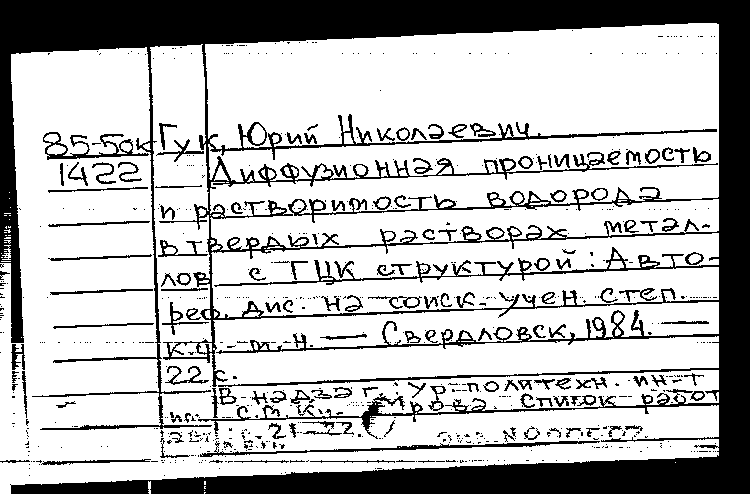 85-5ок Гук, Юрий Николаевич.
1422 Диффузионная проницаемость
и растворимость водорода
в твердых растворах метал-
лов с ГЦК структурой: Авто-
реф. дис. на соиск. учен. степ.
к.ф.-т.н. — Свердловск, 1984. —
22 с.
В надзаг.: Ур. политехн. ин-т
им. С.М. Кирова. Список работ
авт.: с. 21-22.